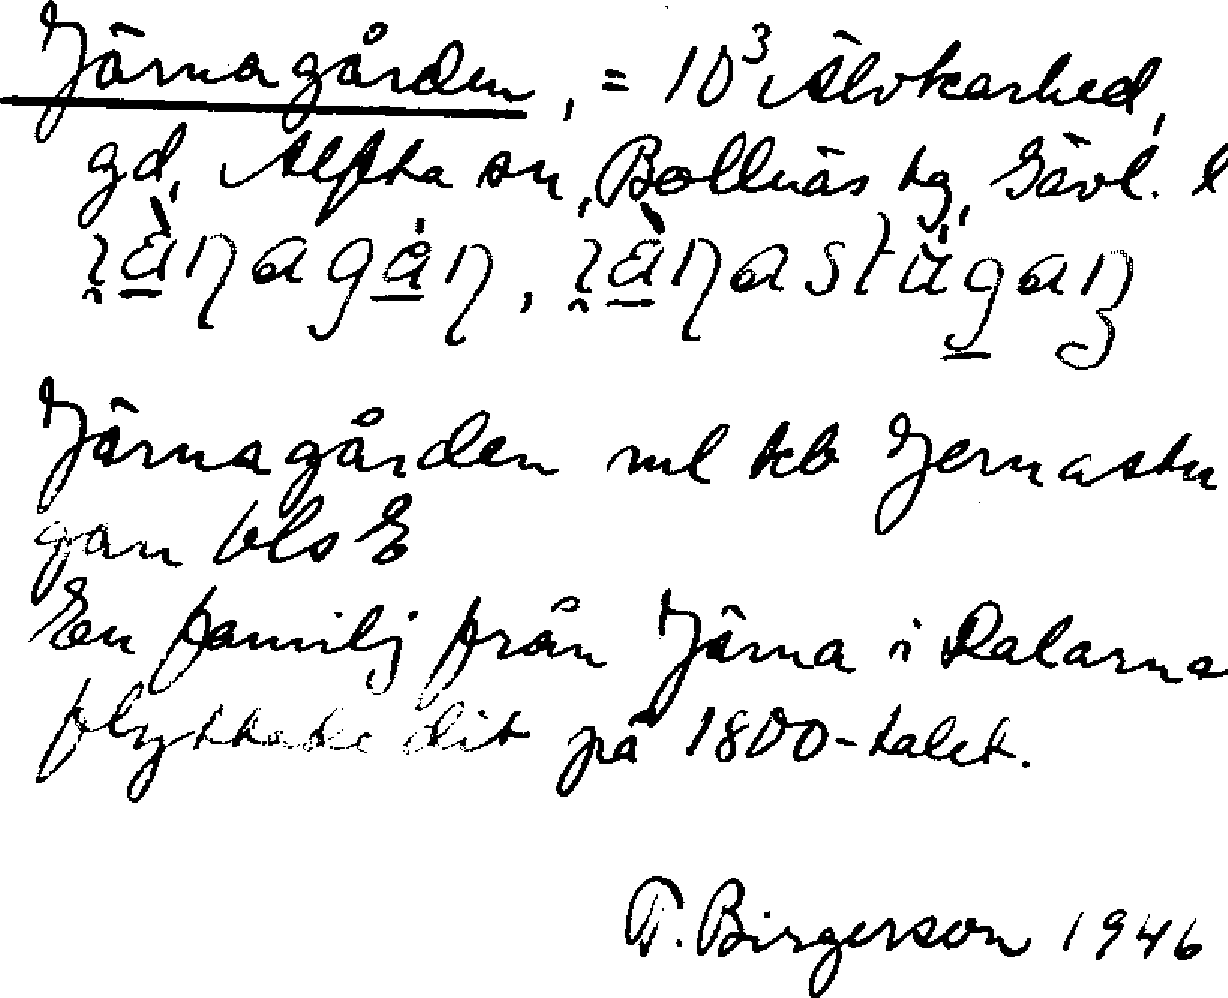 Järnagården, = 10³ Älvkarhed,
gd, Alfta sn, Bollnäs tg, Gävl. l
Järnagården ml kb Jernastu
gan bls E
En familj från Järna i Dalarna
flyttade dit på 1800-talet.
T. Birgerson 1946